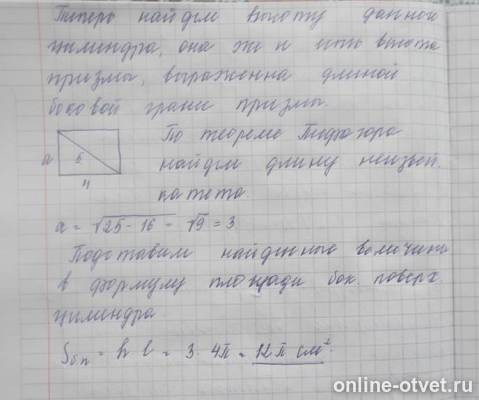 Теперь найдем высоту данной
цилиндра, она же и высота
призмы, выраженна длиной
боковой грани призмы.
По теореме Пифагора
a 5 найдем длину неизвес.
4 катета.
a = √25 - 16 = √9 = 3
Подставим найденные величины
в формулу площади бок. поверх.
цилиндра
Sбп = h l = 3 · 4π = 12π см²
online-otvet.ru